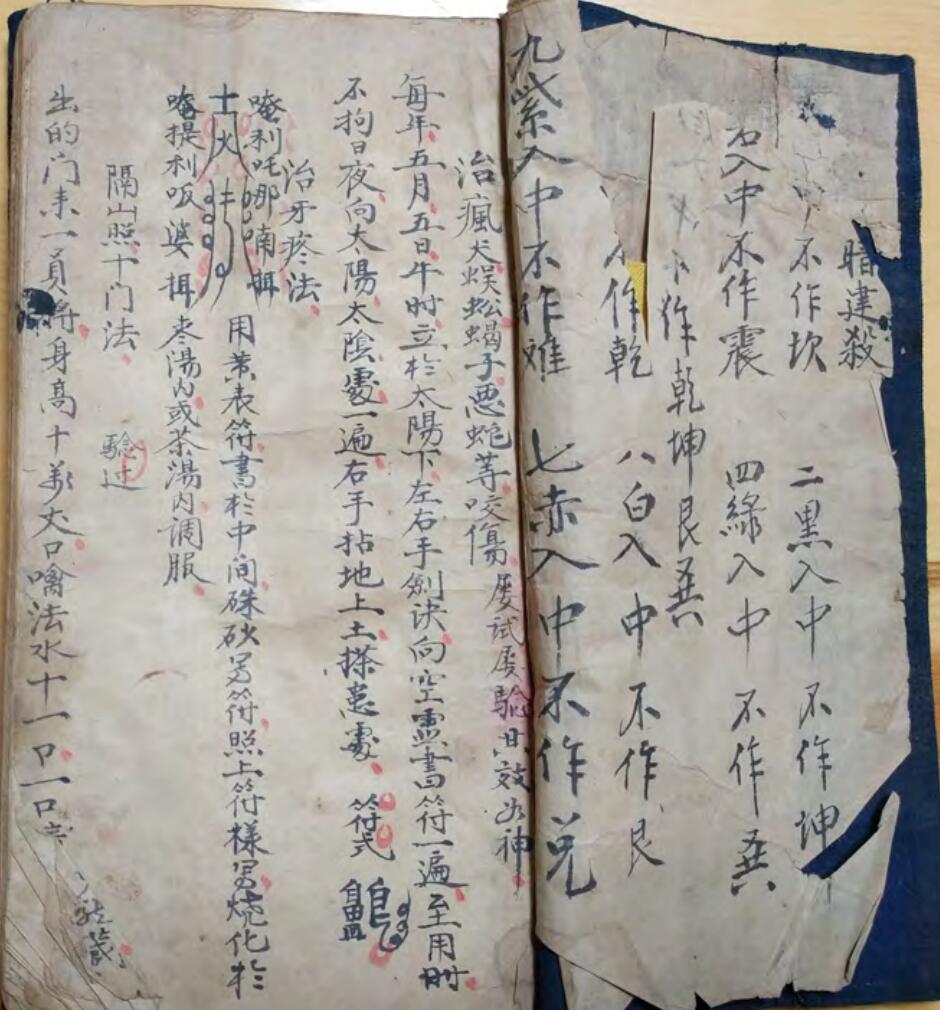 暗建殺
中不作坎 二黑入中 不作坤
入中不作震 四綠入中 不作巽
不作乾坤艮巽
作乾 八白入中 不作艮
九紫入中不作離 七赤入中不作兌
治瘋犬蜈蚣蝎子惡蛇等咬傷 屡試屡驗其效如神
每年五月五日午时立於太陽下左右手劍訣向空虛書符一遍至用时
不拘日夜向太陽太陰處一遍右手拈地上土搽患處 符式
治牙疼法
唵利吒哪喃
用黃表符書於中间硃砂写符照上符樣写燒化於
唵提利哌婆 枣湯内或茶湯内调服
隔山照十门法 驗过
出的门来一員將身高十丈口噙法水十一口一口